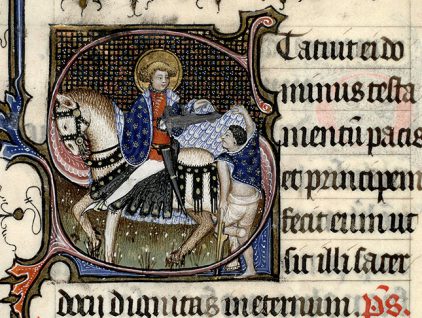 Statuit ei do
minus testa
mentū pacis
et principem
fecit eum ut
sit illi sacer
docii dignitas in eternum. ps.